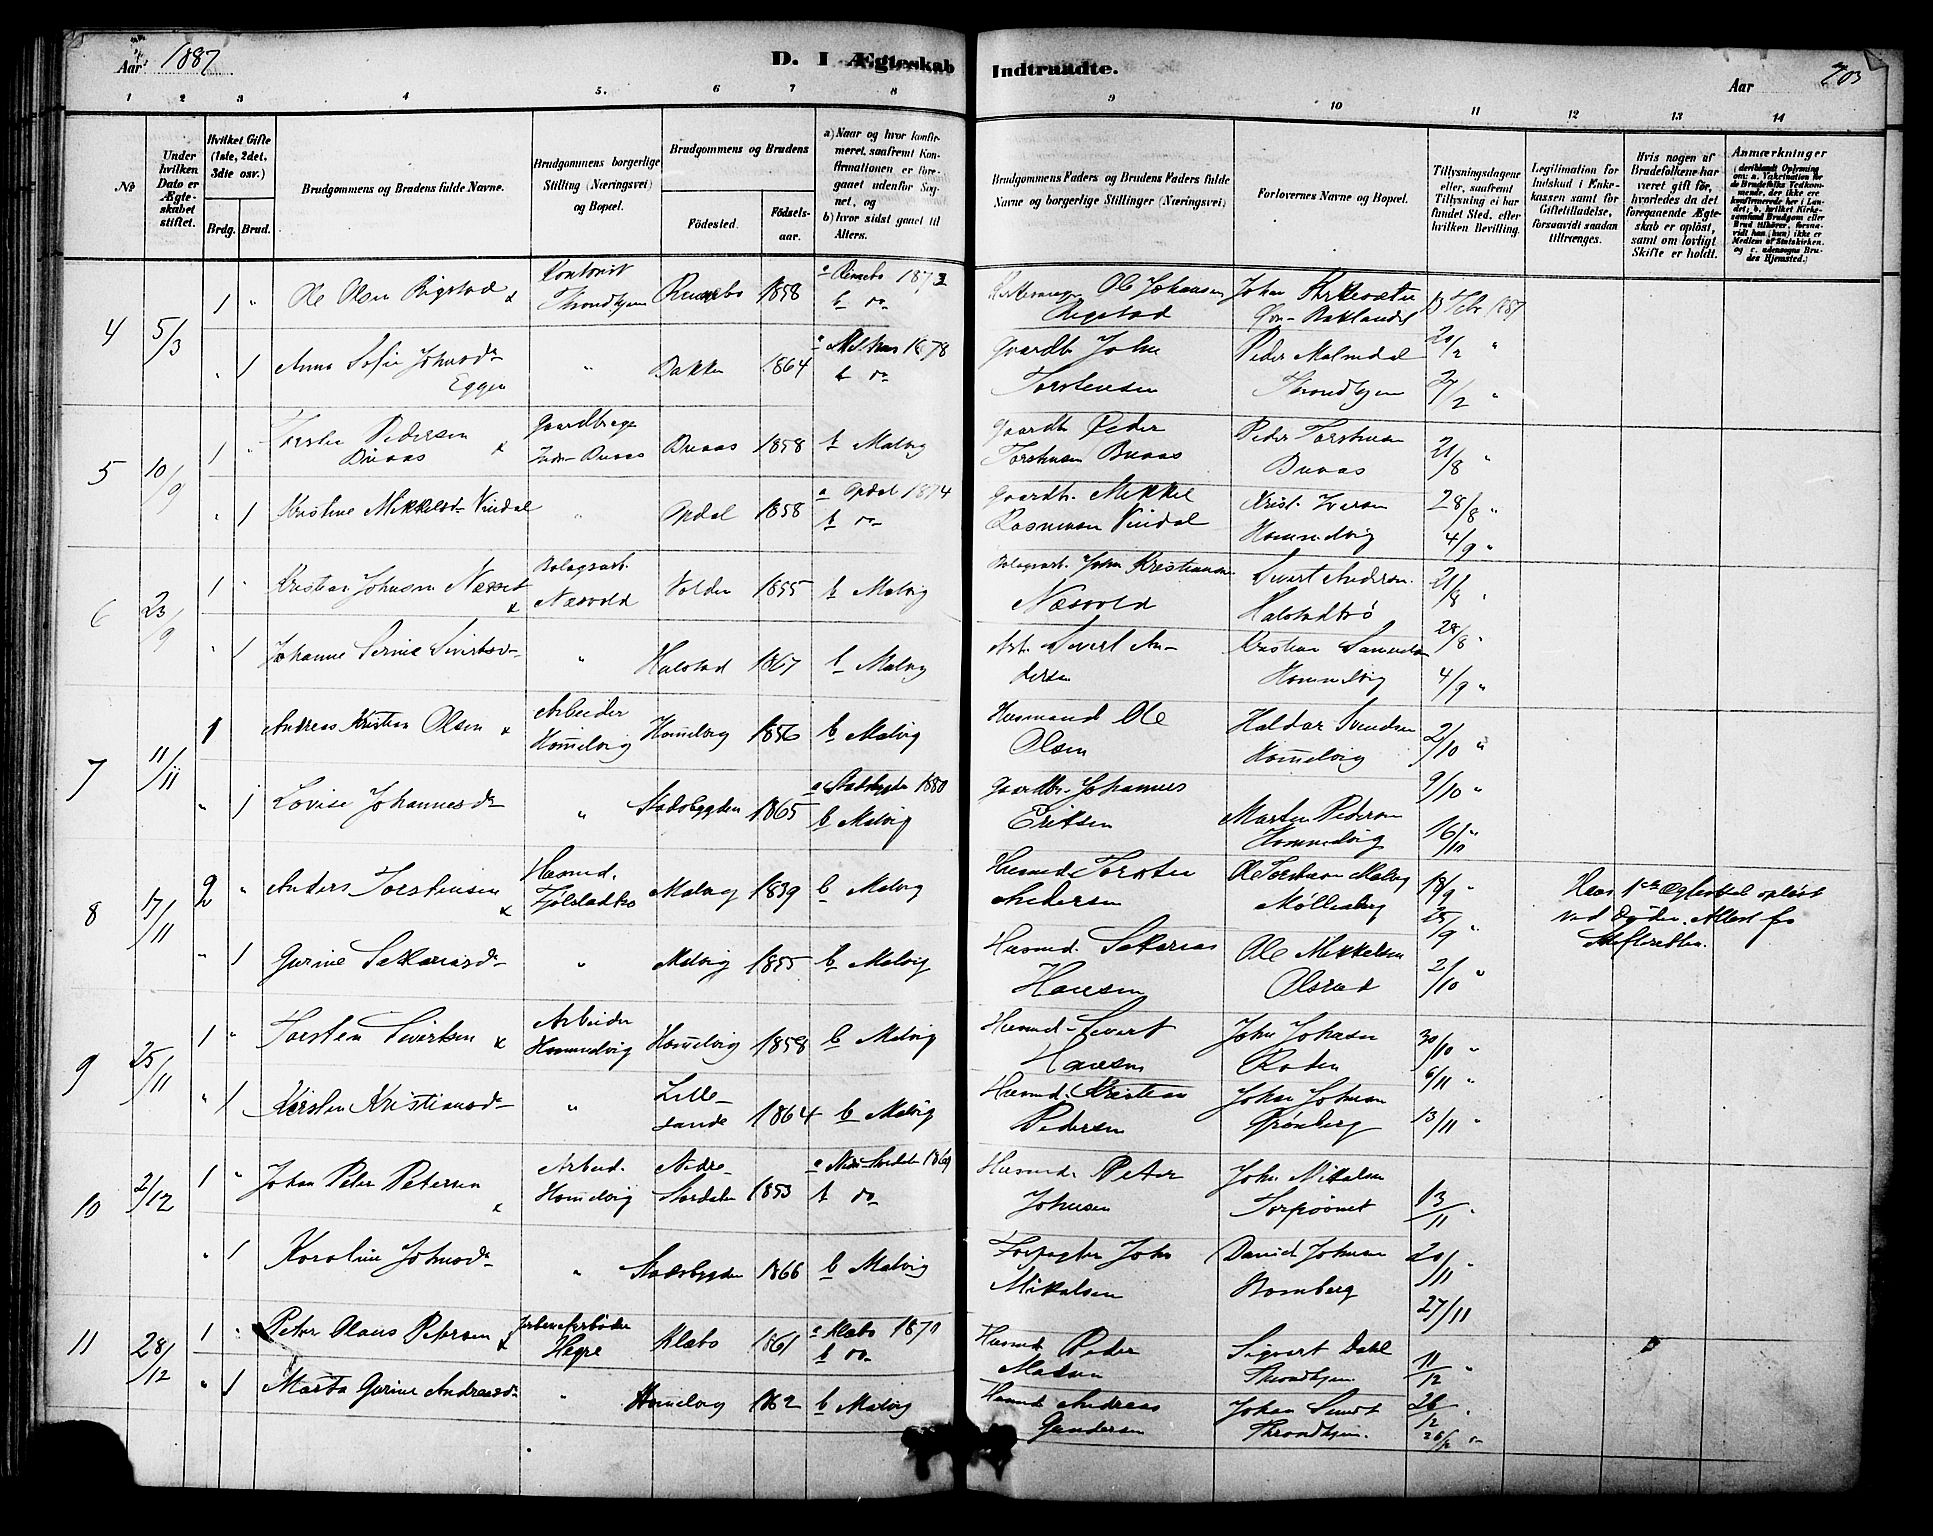 Aar 1887
D. I Ægteskab Indtraadte.
Aar 703
1 2 3 4 5. 6 7 8 9 10 11 12 13 14
№
Under hvilken Dato er Ægteskabet stiftet.
Hvilket Gifte (1ste, 2det, 3dte osv.)
Brdg. Brud.
Brudgommens og Brudens fulde Navne.
Brudgommens borgerlige Stilling (Næringsvei) og Bopæl.
Brudgommens og Brudens
Fødested.
Fødselsaar.
a) Naar og hvor konfirmeret, saafremt Konfirmationen er foregaaet udenfor Sognet, og
b) hvor sidst gaaet til Alters.
Brudgommens Faders og Brudens Faders fulde Navne og borgerlige Stillinger (Næringsvei)
Forlovernes Navne og Bopæl.
Tillysningsdagene eller, saafremt Tillysning ei har fundet Sted, efter hvilken Bevilling.
Legitimation for Indskud i Enkekassen samt for Giftetilladelse, forsaavidt saadan tiltrænges.
Hvis nogen af Brudefolkene har været gift før, hvorledes da det foregaaende Ægteskab er opløst, samt om lovligt Skifte er holdt.
Anmærkninger
4 5/3 1 " Ole Olsen Rigstad Kontorist Throndhjem Rennebo 1858 a Rennebo 1873 b do Ole Johansen Rigstad Johan 13 Febr 1887
" 1 Anna Sofie Johnsd. Eggen " Bakken 1864 a Melhus 1878 b do Gaardb. John Torstensen Peder Malmdal Throndhjem 20/2 " 27/2 "
5 10/9 1 " Torsten Pedersen Buaas Gaardbruger Buaas 1858 b Malvig Gaardb. Peder Torstensen Buaas Peder Torstensen Buaas 21/8 "
" 1 Kristine Mikkelsd. Vindal " Opdal 1858 a Opdal 1874 b do Gaardb. Mikkel Rasmussen Vindal Krist. Iversen Hommelvig 28/8 " 4/9 "
6 23/9 1 " Kristian Johnsen Næsset Bolagsarb. Næsvold Volden 1855 b Malvig Bolagsarb. John Kristiansen Næsvold Sivert Andersen Halstadtrø 21/8 "
" 1 Johanne Serine Sivertsd. " Halstad 1867 b Malvig Arb. Sivert Andersen Kristian Hommelvig 28/8 " 4/9 "
7 11/11 1 Andreas Kristian Olsen Arbeider Hommelvig Hommelvig 1856 b Malvig Husmand Ole Olsen Haldor Svendsen Hommelvig 2/10 "
" 1 Lovise Johannesd. " Stadsbygden 1865 a Stadsbygden 1880 b Malvig Gaardbr. Johannes Eriksen Morten Pedersen Hommelvig 9/10 " 16/10 "
8 17/11 2 " Anders Torstensen Husmd. Malvig 1839 b Malvig Husmd. Torsten Andersen Ole Torstensen Malvig Møllenberg 18/9 " 25/9 " Hans 1ste Ægteskab opløst ved Døden. Attest fra Skifteretten.
" 1 Gurine Sakariasd. " Malvig 1855 b Malvig Husmd. Sakarias Hansen Ole Mikkelsen Olstad 2/10 "
9 25/11 1 " Torsten Sivertsen Arbeider Hommelvig Hommelvig 1858 b Malvig Husmd. Sivert Hansen John Johnsen Roden 30/10 " 6/11 "
" 1 Kirsten Kristiansd. " Lillesande 1864 b Malvig Husmd. Kristian Pedersen Johan Johnsen Grønberg 13/11 "
10 2/12 1 " Johan Peter Petersen Arbeid. Hommelvig Nedre Stordalen 1853 a Nedre Stordalen 1869 b do Husmd. Peter Johnsen John Mikalsen 13/11 "
" 1 Karoline Johnsd. " Stadsbygden 1866 b Malvig Forpagter John Mikalsen David Johnsen Bomberg 20/11 " 27/11
11 28/12 1 " Peter Olaus Petersen Jernbanearbeider Hegre Klæbo 1861 a Klæbo 1870 b do Husmd. Peder Madsen Sigvart Dahl Throndhjem 11/12 "
" 1 Marta Gurine Andreasd. " Hommelvig 1862 b Malvig Husmd. Andreas Gundersen Johan Throndhjem. 26/12 "